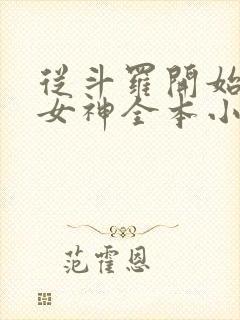 從斗羅開始
女神全本小
范霍恩